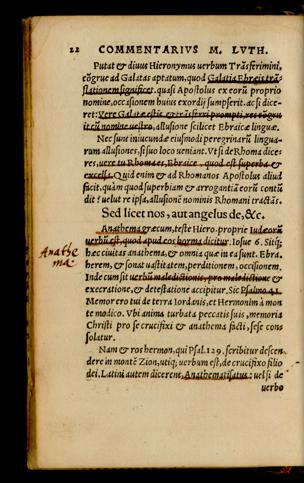 22 COMMENTARIVS M. LVTH.
Putat & diuus Hieronymus uerbum Trãsferimini,
cõgrue ad Galatas aptatum, quod Galatia Ebræis trãs=
slationem significet. quasi Apostolus ex eorũ proprio
nomine, occasionem huius exordij sumpserit. ac si dice=
ret: Vere Galatæ estis & trãsferri prompti, res cõgru
it cũ nomine uestro, allusione scilicet Ebraicæ linguæ.
Nec sunt iniucundæ eiusmodi peregrinarũ lingua=
rum allusiones, si suo loco ueniant. Vt si de Rhoma dice
res, uere tu Rhoma es, Ebraice, quod est superba &
excelsa. Quid enim & ad Rhomanos Apostolus aliud
facit, quàm quod superbiam & arrogantiã eorũ contũ
dit? uelut re ipsa, allusione nominis Rhomani tractãs.
Sed licet nos, aut angelus de, &c.
Anathema græcum, teste Hiero. proprie Iudæorũ
uerbũ est, quod apud eos horma dicitur. Iosue 6. Sitq́;
hæc ciuitas anathema, & omnia quæ in ea sunt. Ebra.
herem, & sonat uastitatem, perditionem, occisionem.
Anathe
Inde cum sit uerbũ maledictionis, pro maledictione &
mæ
execratione, & detestatione accipitur. Sic Psalmo 41.
Memor ero tui de terra Iordanis, et Hermonim à mon
te modico. Vbi anima turbata peccatis suis, memoria
Christi pro se crucifixi & anathema facti, sese con=
solatur.
Nam & ros hermon, qui Psal. 129. scribitur descen
dere in montẽ Zion, utiq; uerbum est, de crucifixo filio
dei. Latini autem dicerem, Anathematisatus: uel si de
uerbo